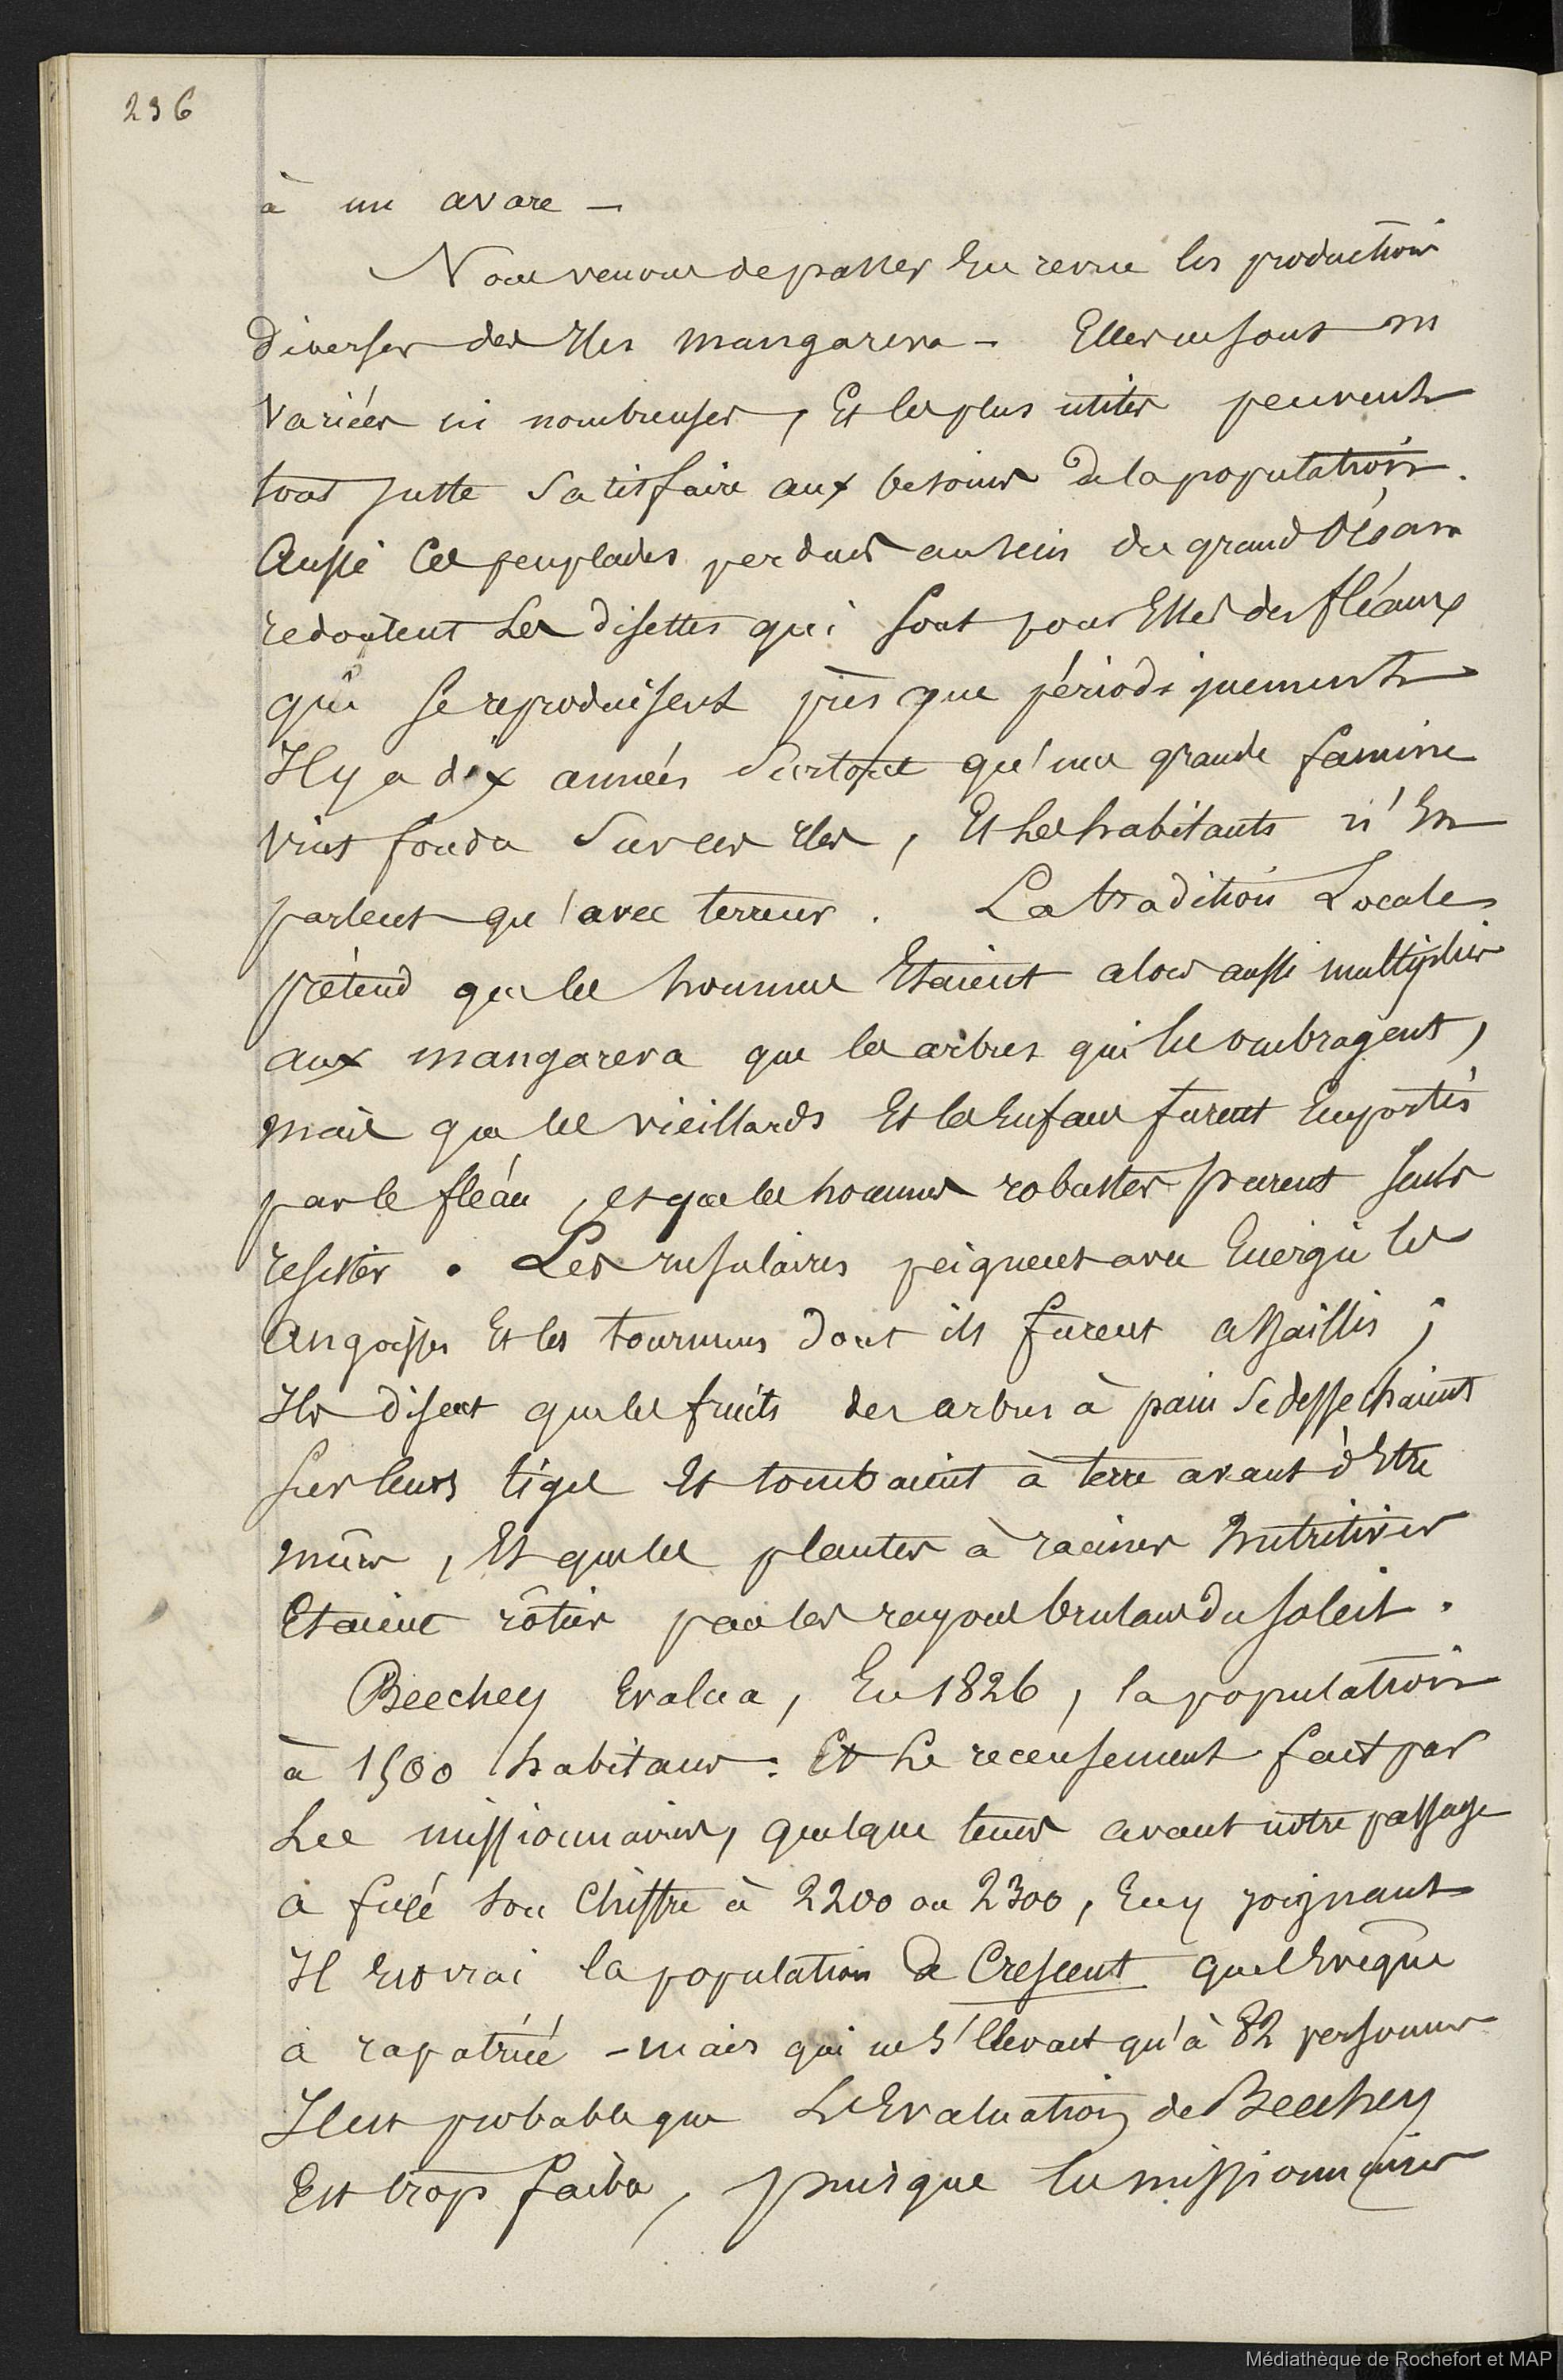 236
à un avare —
Nous venons de passer En revue les productions
diverses des Iles mangareva — Elles ne sont ni
Variées ni nombreuses, Et les plus utiles peuvent
tout juste Satisfaire aux besoins de la population.
Aussi Ces peuplades perdues au sein du grand Océan
redoutent Les disettes qui sont pour Elles des fléaux
qui se reproduisent près que périodiquement
Il y a dix années Surtout qu'une grande famine
vint fondre Sur ces Iles, Et Les habitants n'En
parlent qu'avec terreur. La tradition Locale
prétend que les hommes Etaient alors aussi multipliés
aux mangareva que les arbres qui les ombragent,
mais que les vieillards Et les Enfans furent Emportés
par le fléau, et que les hommes robustes purent seuls
resister. Les insulaires peignent avec Energie les
angoisses Et les tourmens dont ils furent assaillis;
Ils disent que les fruits des arbres à pain Se dessechaient
sur leurs tiges Et tombaient à terre avant d'Etre
mûrs, Et que les plantes à racines nutritives
Etaient rôties par les rayons brulans du soleil.
Beechey Evalua, En 1826, la population
à 1500 habitans: Et Le recensement fait par
Les missionnaires, quelque tems avant notre passage
a fixé son Chiffre à 2200 ou 2300, En y joignant
Il Est vrai la population de Crescent que l'Evêque
a rapatriée — mais qui ne s'Elevait qu'à 82 personnes
Il est probable que L'Evaluation de Beechey
Est trop faible, puisque les missionnaires
Médiathèque de Rochefort et MAP